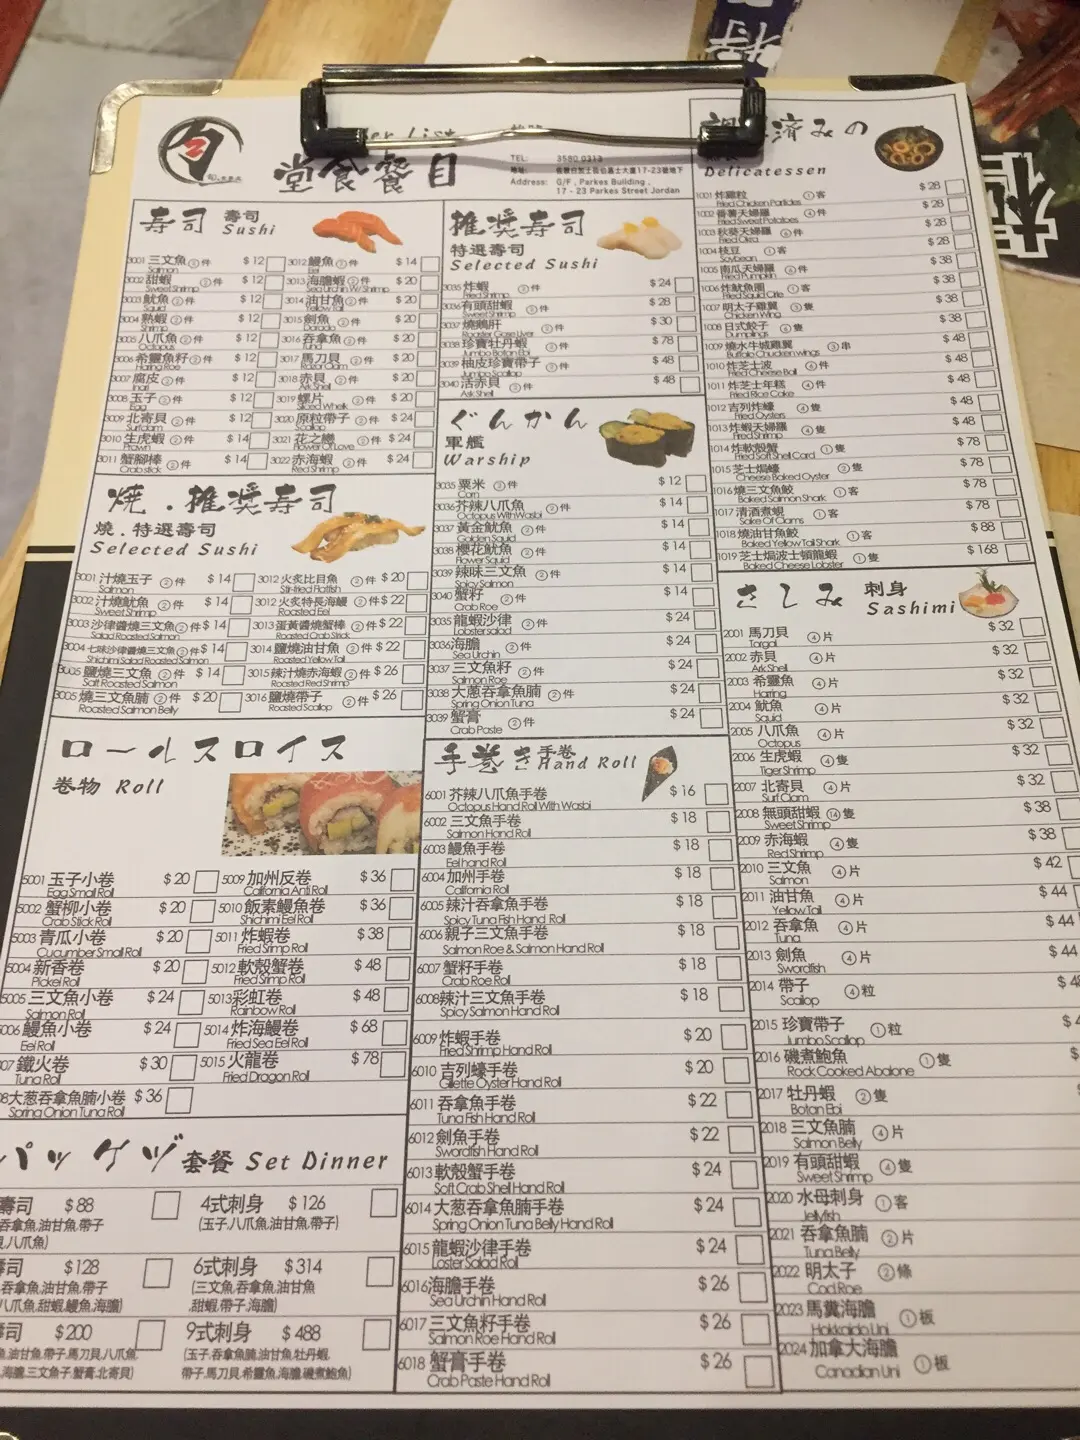 堂食餐目
TEL: 3580 0313
Address: G/F , Parkes Building ,
17 - 23 Parkes Street Jordan
寿司 壽司
Sushi
3001 三文魚 ②件 $12
Salmon
3002 甜蝦 ②件 $12
Sweet Shrimp
3003 魷魚 ②件 $12
Squid
3004 熟蝦 ②件 $12
Shrimp
3005 八爪魚 ②件 $12
Octopus
3006 希靈魚籽 ②件 $12
Haring Roe
3007 腐皮 ②件 $12
Inari
3008 玉子 ②件 $12
Egg
3009 北寄貝 ②件 $12
Surfclam
3010 生虎蝦 ②件 $14
Prawn
3011 蟹腳棒 ②件 $14
Crab stick
3012 鰻魚 ②件 $14
Eel
3013 海膽蝦 ②件 $20
Sea Urchin W/Shrimp
3014 油甘魚 ②件 $20
Yellow Tail
3015 劍魚 ②件 $20
Dorado
3016 吞拿魚 ②件 $20
Tuna
3017 馬刀貝 ②件 $20
Razor Clam
3018 赤貝 ②件 $20
Ark Shell
3019 螺片 ②件 $20
Sliced Whelk
3020 原粒帶子 ②件 $24
Scallop
3021 花之戀 ②件 $24
Flower Of Love
3022 赤海蝦 ②件 $24
Red Shrimp
焼 . 推奨寿司
燒 . 特選壽司
Selected Sushi
3001 汁燒玉子 ②件 $14
Salmon
3002 汁燒魷魚 ②件 $14
Sweet Shrimp
3003 沙律醬燒三文魚 ②件 $14
Salad Roasted Salmon
3004 七味沙律醬燒三文魚 ②件 $14
Shichimi Salad Roasted Salmon
3005 鹽燒三文魚 ②件 $14
Salt Roasted Salmon
3005 燒三文魚腩 ②件 $20
Roasted Salmon Belly
3012 火炙比目魚 ②件 $20
Stir-fried Flatfish
3012 火炙特長海鰻 ②件 $22
Roasted Eel
3013 蛋黃醬燒蟹棒 ②件 $22
Roasted Crab Stick
3014 鹽燒油甘魚 ②件 $22
Roasted Yellow Tail
3015 辣汁燒赤海蝦 ②件 $26
Roasted Red Shrimp
3016 鹽燒帶子 ②件 $26
Roasted Scallop
ロールスロイス
卷物 Roll
5001 玉子小卷 $20
Egg Small Roll
5002 蟹柳小卷 $20
Crab Stick Roll
5003 青瓜小卷 $20
Cucumber Small Roll
5004 新香卷 $20
Pickel Roll
5005 三文魚小卷 $24
Salmon Roll
鰻魚小卷 $24
Eel Roll
鐵火卷 $30
Tuna Roll
大葱吞拿魚腩小卷 $36
Spring Onion Tuna Roll
5009 加州反卷 $36
California Anti Roll
5010 飯素鰻魚卷 $36
Shichimi Eel Roll
5011 炸蝦卷 $38
Fried Srimp Roll
5012 軟殼蟹卷 $48
Fried Srimp Roll
5013 彩虹卷 $48
Rainbow Roll
5014 炸海鰻卷 $68
Fried Sea Eel Roll
5015 火龍卷 $78
Fried Dragon Roll
パッケヅ 套餐 Set Dinner
壽司 $88
吞拿魚,油甘魚,帶子
八爪魚)
$128
吞拿魚,油甘魚,帶子
八爪魚,甜蝦,鰻魚,海膽)
$200
魚,油甘魚,帶子,馬刀貝,八爪魚,
海膽,三文魚子,蟹膏,北寄貝)
4式刺身 $126
(玉子,八爪魚,油甘魚,帶子)
6式刺身 $314
(三文魚,吞拿魚,油甘魚
,甜蝦,帶子,海膽)
9式刺身 $488
(玉子,吞拿魚腩,油甘魚,牡丹蝦,
帶子,馬刀貝,希靈魚,海膽,磯煮鮑魚)
推奨寿司
特選壽司
Selected Sushi
3035 炸蝦 ②件 $24
Fried Shrimp
3036 有頭甜蝦 ②件 $28
Sweet Shrimp
3037 燒鵝肝 ②件 $30
Roaster Gase Liver
3038 珍寶牡丹蝦 ②件 $78
Jumbo Botan Ebi
3039 柚皮珍寶帶子 ②件 $48
Jumbo Scallop
3040 活赤貝 $48
Ask Shell
ぐんかん
軍艦
Warship
3035 粟米 ②件 $12
Corn
3036 芥辣八爪魚 ②件 $14
Octopus With Wasbi
3037 黃金魷魚 ②件 $14
Golden Squid
3038 櫻花魷魚 ②件 $14
Flower Squid
3039 辣味三文魚 ②件 $14
Spicy Salmon
3040 蟹籽 ②件 $14
Crab Roe
3035 龍蝦沙律 ②件 $24
Lobster salad
3036 海膽 ②件 $24
Sea Urchin
3037 三文魚籽 ②件 $24
Salmon Roe
3038 大葱吞拿魚腩 ②件 $24
Spring Onion Tuna
3039 蟹膏 ②件 $24
Crab Paste
手巻き 手卷 Hand Roll
6001 芥辣八爪魚手卷 $16
Octopus Hand Roll With Wasbi
6002 三文魚手卷 $18
Salmon Hand Roll
6003 鰻魚手卷 $18
Eel hand Roll
6004 加州手卷 $18
California Roll
6005 辣汁吞拿魚手卷 $18
Spicy Tuna Fish Hand Roll
6006 親子三文魚手卷 $18
Salmon Roe & Salmon Hand Roll
6007 蟹籽手卷 $18
Crab Roe Roll
6008 辣汁三文魚手卷 $18
Spicy Salmon Hand Roll
6009 炸蝦手卷 $20
Fried Shrimp Hand Roll
6010 吉列蠔手卷 $20
Gillette Oyster Hand Roll
6011 吞拿魚手卷 $22
Tuna Fish Hand Roll
6012 劍魚手卷 $22
Swordfish Hand Roll
6013 軟殼蟹手卷 $24
Soft Crab Shell Hand Roll
6014 大葱吞拿魚腩手卷 $24
Spring Onion Tuna Belly Hand Roll
6015 龍蝦沙律手卷 $24
Loster Salad Roll
6016 海膽手卷 $26
Sea Urchin Hand Roll
6017 三文魚籽手卷 $26
Salmon Roe Hand Roll
6018 蟹膏手卷 $26
Crab Paste Hand Roll
済みの
Delicatessen
1001 炸雞粒 ①客 $28
Fried Chicken Particles
1002 番薯天婦羅 ④件 $28
Fried Sweet Potatoes
1003 秋葵天婦羅 ④件 $28
Fried Okra
1004 枝豆 ①客 $28
Soybean
1005 南瓜天婦羅 ④件 $38
Fried Pumpkin
1006 炸魷魚圈 ①客 $38
Fried Squid Cirle
1007 明太子雞翼 $38
Chicken Wing
1008 日式餃子 $38
Dumplings
1009 燒水牛城雞翼 ③串 $48
Buffalo Chucken wings
1010 炸芝士波 ④件 $48
Fried Cheese Ball
1011 炸芝士年糕 ④件 $48
Fried Rice Cake
1012 吉列炸蠔 ④隻 $48
Fried Oysters
1013 炸蝦天婦羅 ④隻 $48
Fried Shrimp
1014 炸軟殼蟹 ①客 $78
Fried Soft Shell Card
1015 芝士焗蠔 ②隻 $78
Cheese Baked Oyster
1016 燒三文魚鮫 ①客 $78
Baked Salmon Shark
1017 清酒煮蜆 ①客 $78
Sake Of Clams
1018 燒油甘魚鮫 ①客 $88
Baked Yellow Tail Shark
1019 芝士焗波士頓龍蝦 ①隻 $168
Baked Cheese Lobster
さしみ 刺身
Sashimi
2001 馬刀貝 ④片 $32
Targal
2002 赤貝 ④片 $32
Ark Shell
2003 希靈魚 ④片 $32
Harring
2004 魷魚 ④片 $32
Squid
2005 八爪魚 ④片 $32
Octopus
2006 生虎蝦 ④隻 $32
Tiger Shrimp
2007 北寄貝 ④片 $32
Surf Clam
2008 無頭甜蝦 ⑭隻 $38
Sweet Shrimp
2009 赤海蝦 ④隻 $38
Red Shrimp
2010 三文魚 ④片 $42
Salmon
2011 油甘魚 ④片 $44
Yellow Tail
2012 吞拿魚 ④片 $44
Tuna
2013 劍魚 ④片 $44
Swordfish
2014 帶子 ④粒
Scallop
2015 珍寶帶子 ①粒
Jumbo Scallop
2016 磯煮鮑魚 ①隻
Rock Cooked Abalone
2017 牡丹蝦 ②隻
Botan Ebi
2018 三文魚腩 ④片
Salmon Belly
2019 有頭甜蝦 ④隻
Sweet Shrimp
2020 水母刺身 ①客
Jellyfish
2021 吞拿魚腩 ②片
Tuna Belly
2022 明太子 ②條
Cod Roe
2023 馬糞海膽 ①板
Hokkaido Uni
2024 加拿大海膽 ①板
Canadian Uni